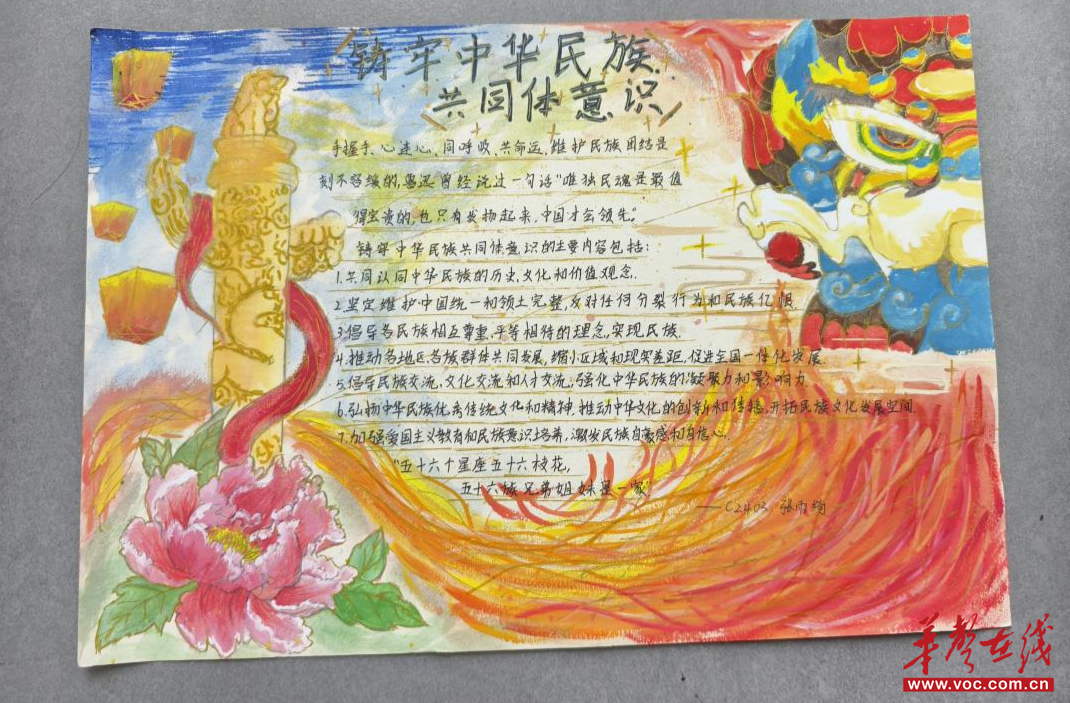 铸牢中华民族
共同体意识
手握手、心连心、同呼吸、共命运,维护民族团结是
刻不容缓的,鲁迅曾经说过一句话"唯独民魂是最值
得宝贵的,也只有发扬起来,中国才会领先。"
铸牢中华民族共同体意识的主要内容包括:
1.共同认同中华民族的历史,文化和价值观念.
2.坚定维护中国统一和领土完整,反对任何分裂行为和民族仇恨
3.倡导各民族相互尊重,平等相待的理念,实现民族.
4.推动各地区各族群体共同发展,缩小区域和现实差距,促进全国一体化发展
5.倡导民族交流,文化交流和人才交流,强化中华民族的凝聚力和影响力
6.弘扬中华民族优秀传统文化和精神,推动中华文化的创新和传播,开拓民族文化发展空间.
7.加强爱国主义教育和民族意识培养,激发民族自豪感和自信心.
"五十六个星座五十六枝花,
五十六族兄弟姐妹是一家"
——C2403 张雨绮
华声在线
www.voc.com.cn